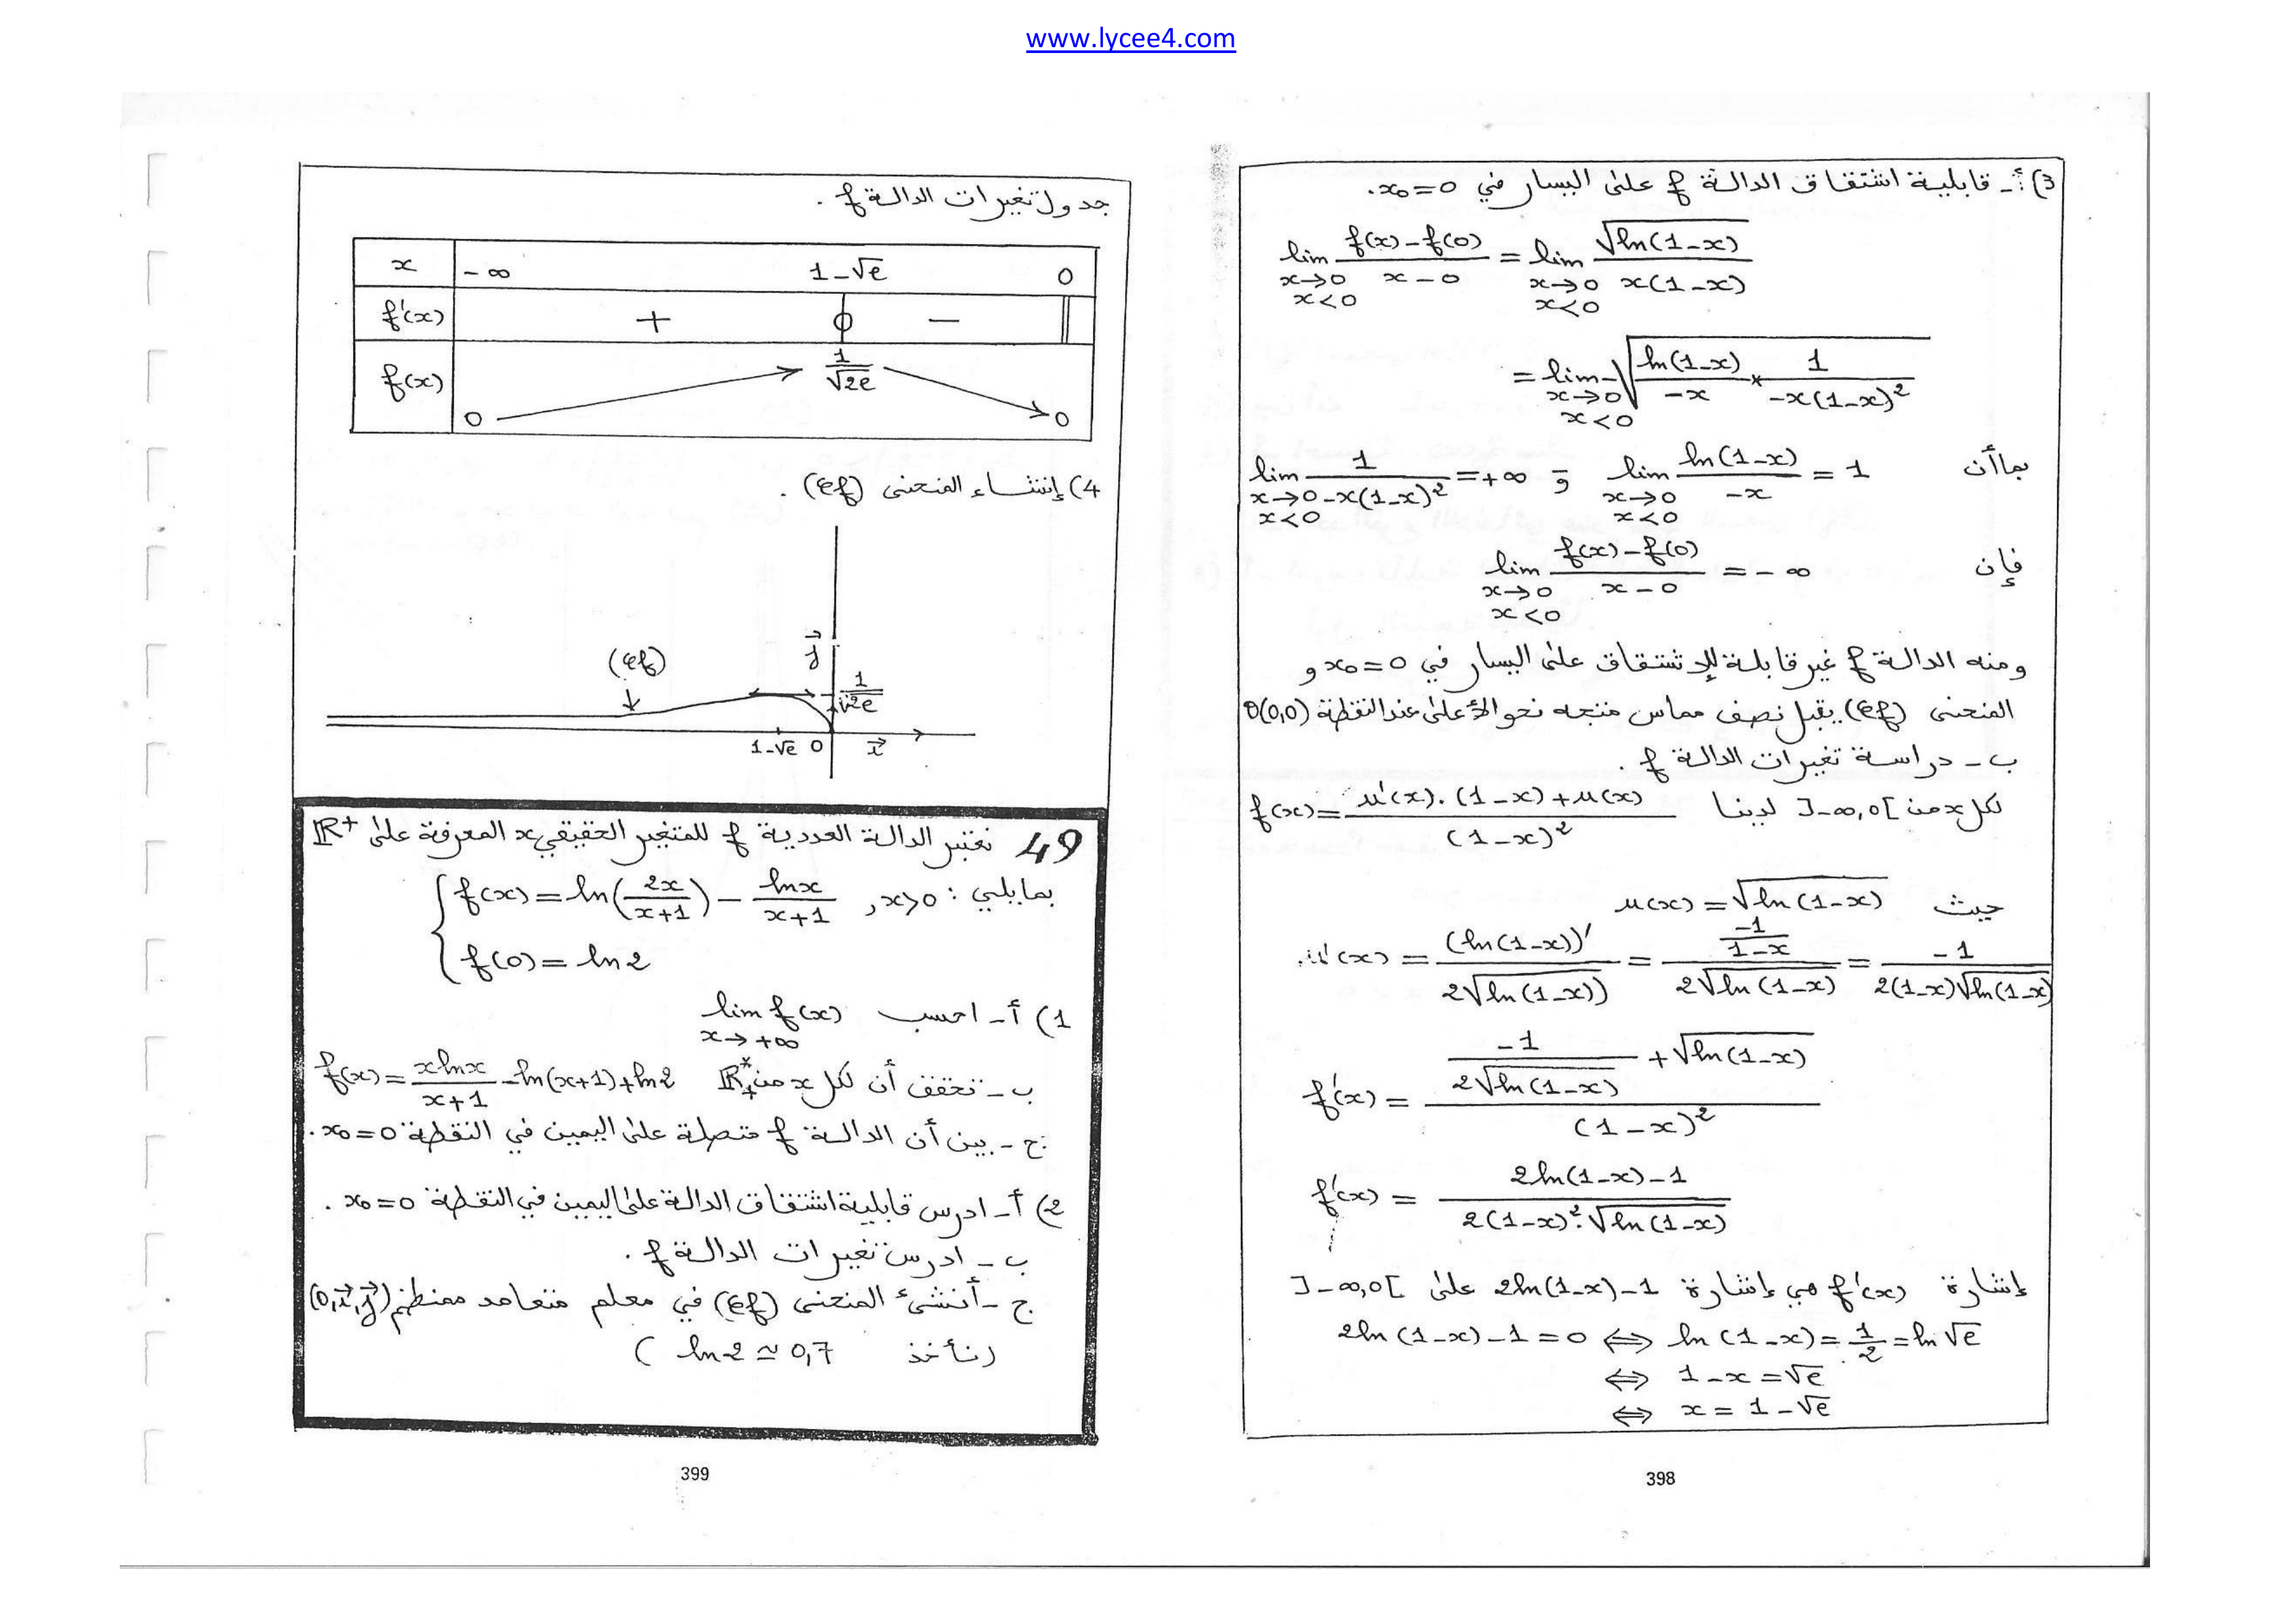 www.lycee4.com
3) أ- قابلية اشتقاق الدالة f على اليسار في x₀=0.
lim_{x→0, x<0} (f(x)-f(0))/(x-0) = lim_{x→0, x<0} √(ln(1-x))/(x(1-x))
= lim_{x→0, x<0} -√(ln(1-x)/(-x) × 1/(-x(1-x)²))
بما أن lim_{x→0, x<0} ln(1-x)/(-x) = 1 و lim_{x→0, x<0} 1/(-x(1-x)²) = +∞
فإن lim_{x→0, x<0} (f(x)-f(0))/(x-0) = -∞
ومنه الدالة f غير قابلة للإشتقاق على اليسار في x₀=0 و
المنحنى (𝒞f) يقبل نصف مماس متجه نحو الأعلى عند النقطة O(0,0)
ب- دراسة تغيرات الدالة f.
لكل x من ]-∞,0[ لدينا f(x) = (u'(x).(1-x)+u(x))/(1-x)²
حيث u(x) = √(ln(1-x))
u'(x) = (ln(1-x))'/(2√(ln(1-x))) = (-1/(1-x))/(2√(ln(1-x))) = -1/(2(1-x)√(ln(1-x)))
f'(x) = (-1/(2√(ln(1-x))) + √(ln(1-x)))/(1-x)²
f'(x) = (2ln(1-x)-1)/(2(1-x)².√(ln(1-x)))
إشارة f'(x) هي إشارة 2ln(1-x)-1 على ]-∞,0[
2ln(1-x)-1=0 ⟺ ln(1-x) = 1/2 = ln√e
⟺ 1-x = √e
⟺ x = 1-√e
398
جدول تغيرات الدالة f.
x -∞ 1-√e 0
f'(x) + 0 -
f(x) 0 1/√2e 0
4) إنشاء المنحنى (𝒞f).
(𝒞f) j 1/√2e
1-√e 0 i
49 نعتبر الدالة العددية f للمتغير الحقيقي x المعرفة على IR⁺
بمايلي: f(x) = ln(2x/(x+1)) - lnx/(x+1) , x>0
f(0) = ln2
1) أ- احسب lim_{x→+∞} f(x)
ب- تحقق أن لكل x من IR₊* f(x) = xlnx/(x+1) - ln(x+1)+ln2
ج- بين أن الدالة f متصلة على اليمين في النقطة x₀=0.
2) أ- ادرس قابلية اشتقاق الدالة على اليمين في النقطة x₀=0.
ب- ادرس تغيرات الدالة f.
ج- أنشئ المنحنى (𝒞f) في معلم متعامد ممنظم (0,i,j)
(نأخذ ln2 ≃ 0,7)
399